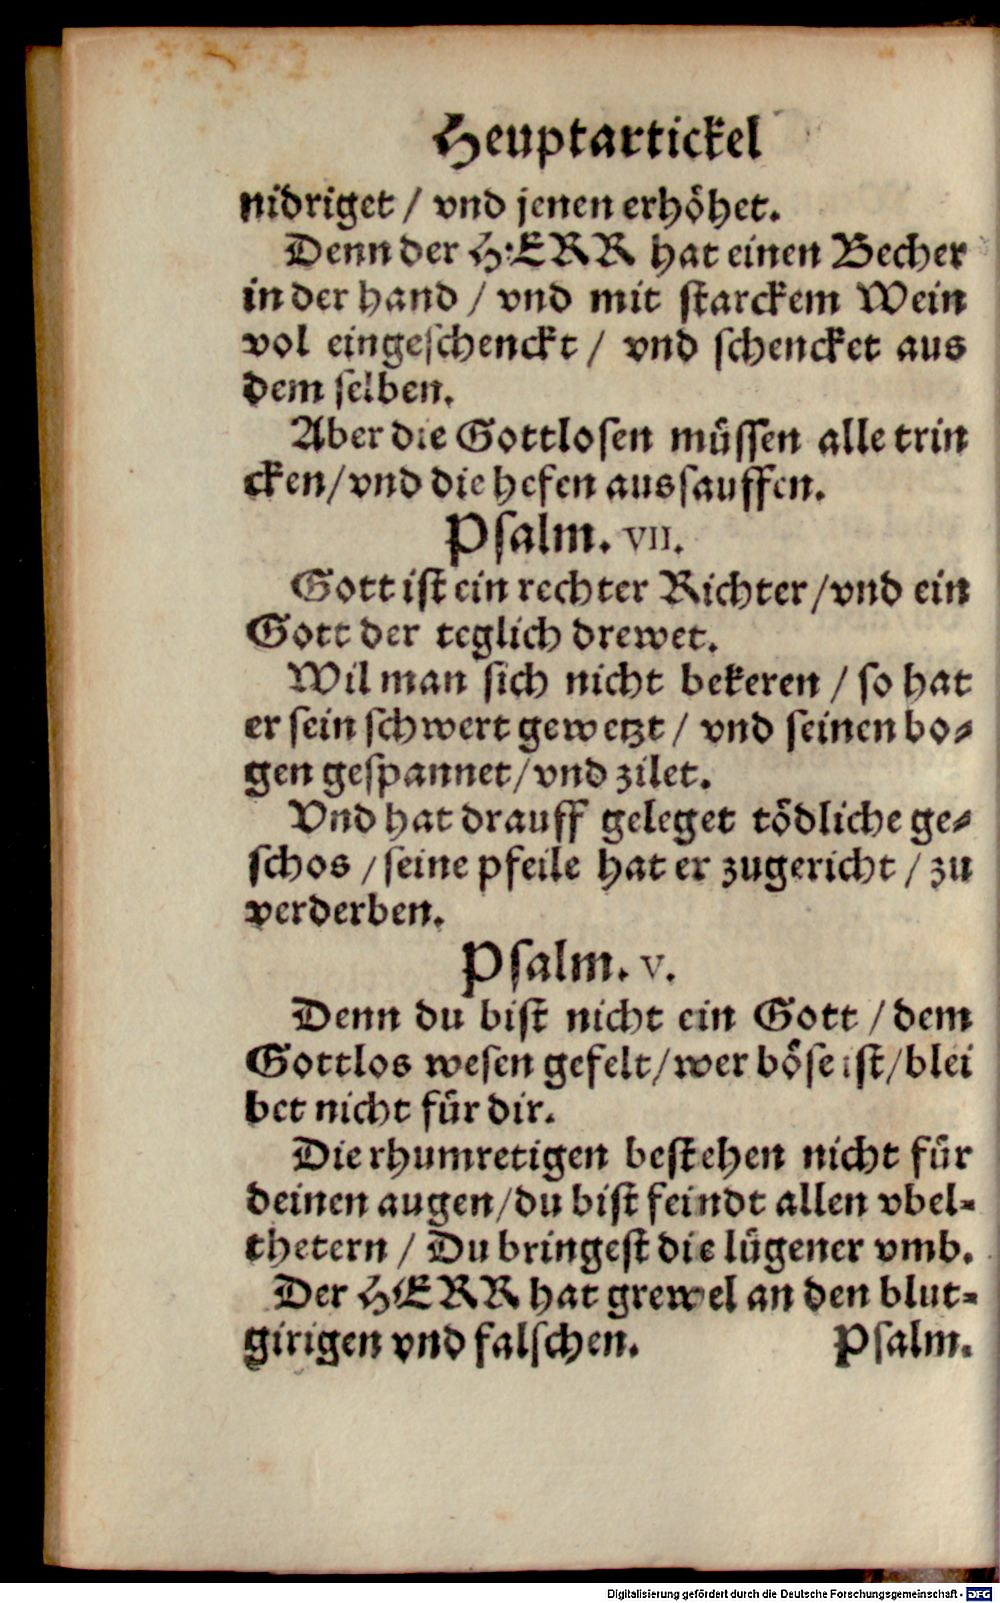 Heuptartickel
nidriget / vnd jenen erhöhet.
Denn der HERR hat einen Becher
in der hand / vnd mit starckem Wein
vol eingeschenckt / vnd schencket aus
dem selben.
Aber die Gottlosen müssen alle trin
cken/vnd die hefen aussauffen.
Psalm. VII.
Gott ist ein rechter Richter/vnd ein
Gott der teglich drewet.
Wil man sich nicht bekeren / so hat
er sein schwert gewetzt / vnd seinen bo⸗
gen gespannet/vnd zilet.
Vnd hat drauff geleget tödliche ge⸗
schos / seine pfeile hat er zugericht / zu
verderben.
Psalm. V.
Denn du bist nicht ein Gott / dem
Gottlos wesen gefelt/wer böse ist/blei
bet nicht für dir.
Die rhumretigen bestehen nicht für
deinen augen/du bist feindt allen vbel⸗
thetern / Du bringest die lügener vmb.
Der HERR hat grewel an den blut⸗
girigen vnd falschen. Psalm.
Digitalisierung gefördert durch die Deutsche Forschungsgemeinschaft - DFG